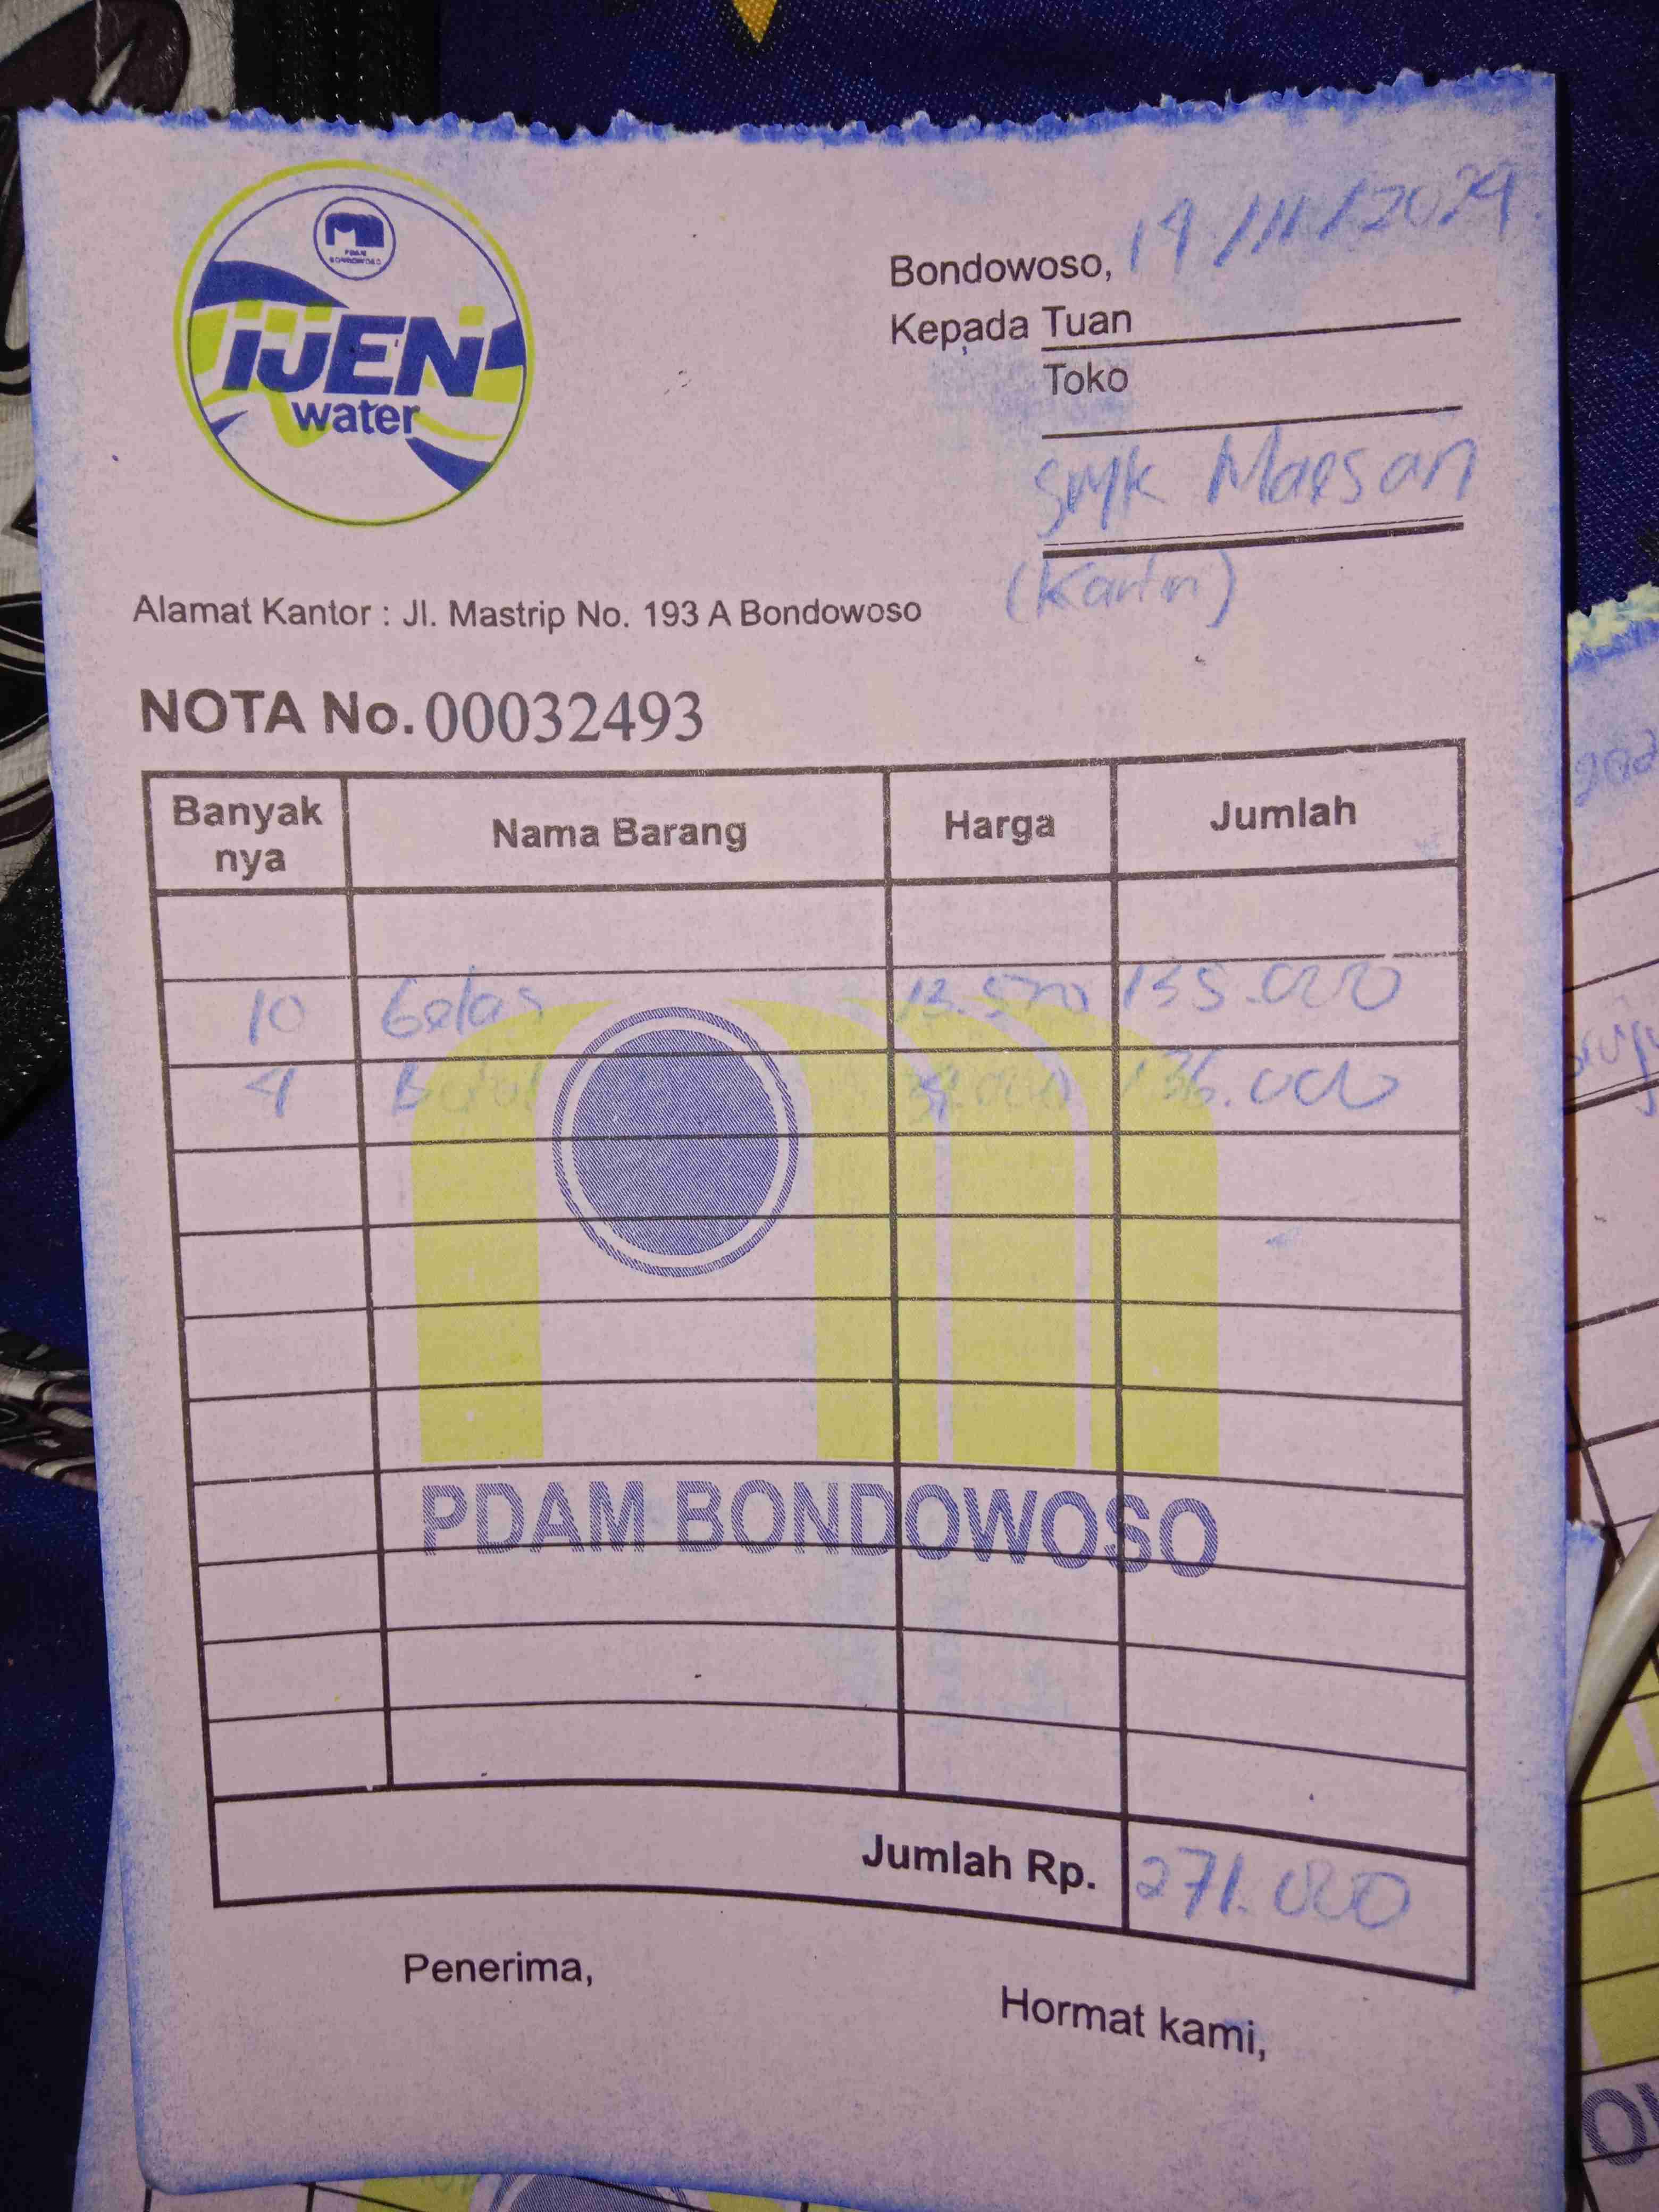 PDAM
BONDOWOSO
iJEN
water
Bondowoso, 14/11/2024
Kepada Tuan
Toko
SMK Maesan
Alamat Kantor : Jl. Mastrip No. 193 A Bondowoso
NOTA No. 00032493
Banyak nya Nama Barang Harga Jumlah
10 Gelas 13.500 135.000
4 Botol 34.000 136.000
PDAM BONDOWOSO
Jumlah Rp. 271.000
Penerima,
Hormat kami,